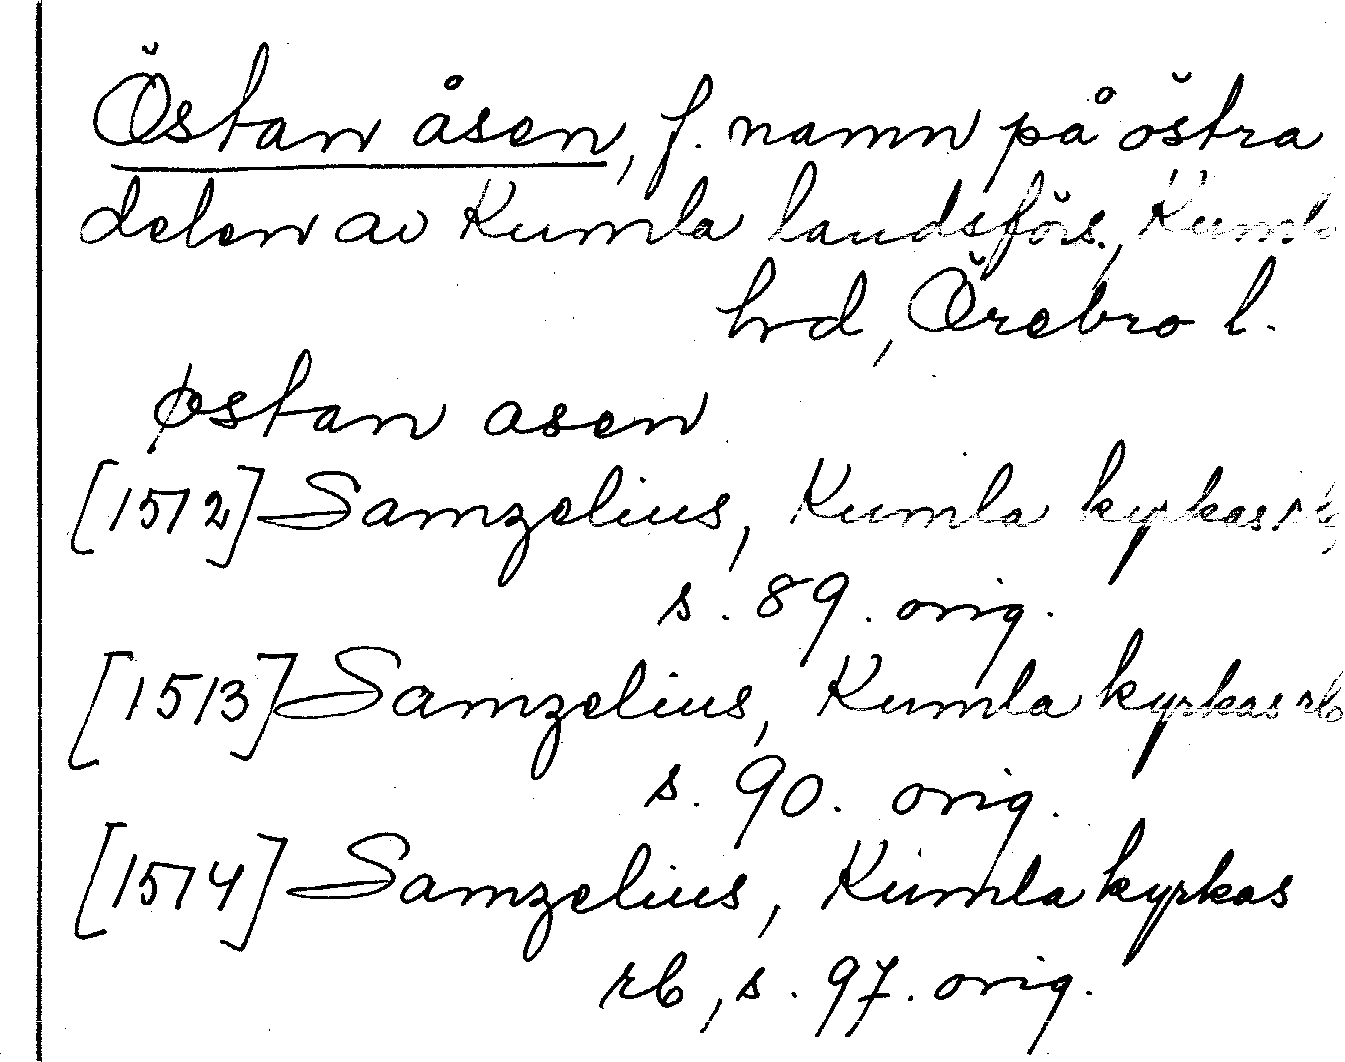 Östan åsen, f. namn på östra
delen av Kumla landsförs., Kumla
hrd, Örebro l.
østan asen
[1512] Samzelius, Kumla kyrkas rb,
s. 89. orig.
[1513] Samzelius, Kumla kyrkas rb
s. 90. orig.
[1514] Samzelius, Kumla kyrkas
rb, s. 97. orig.